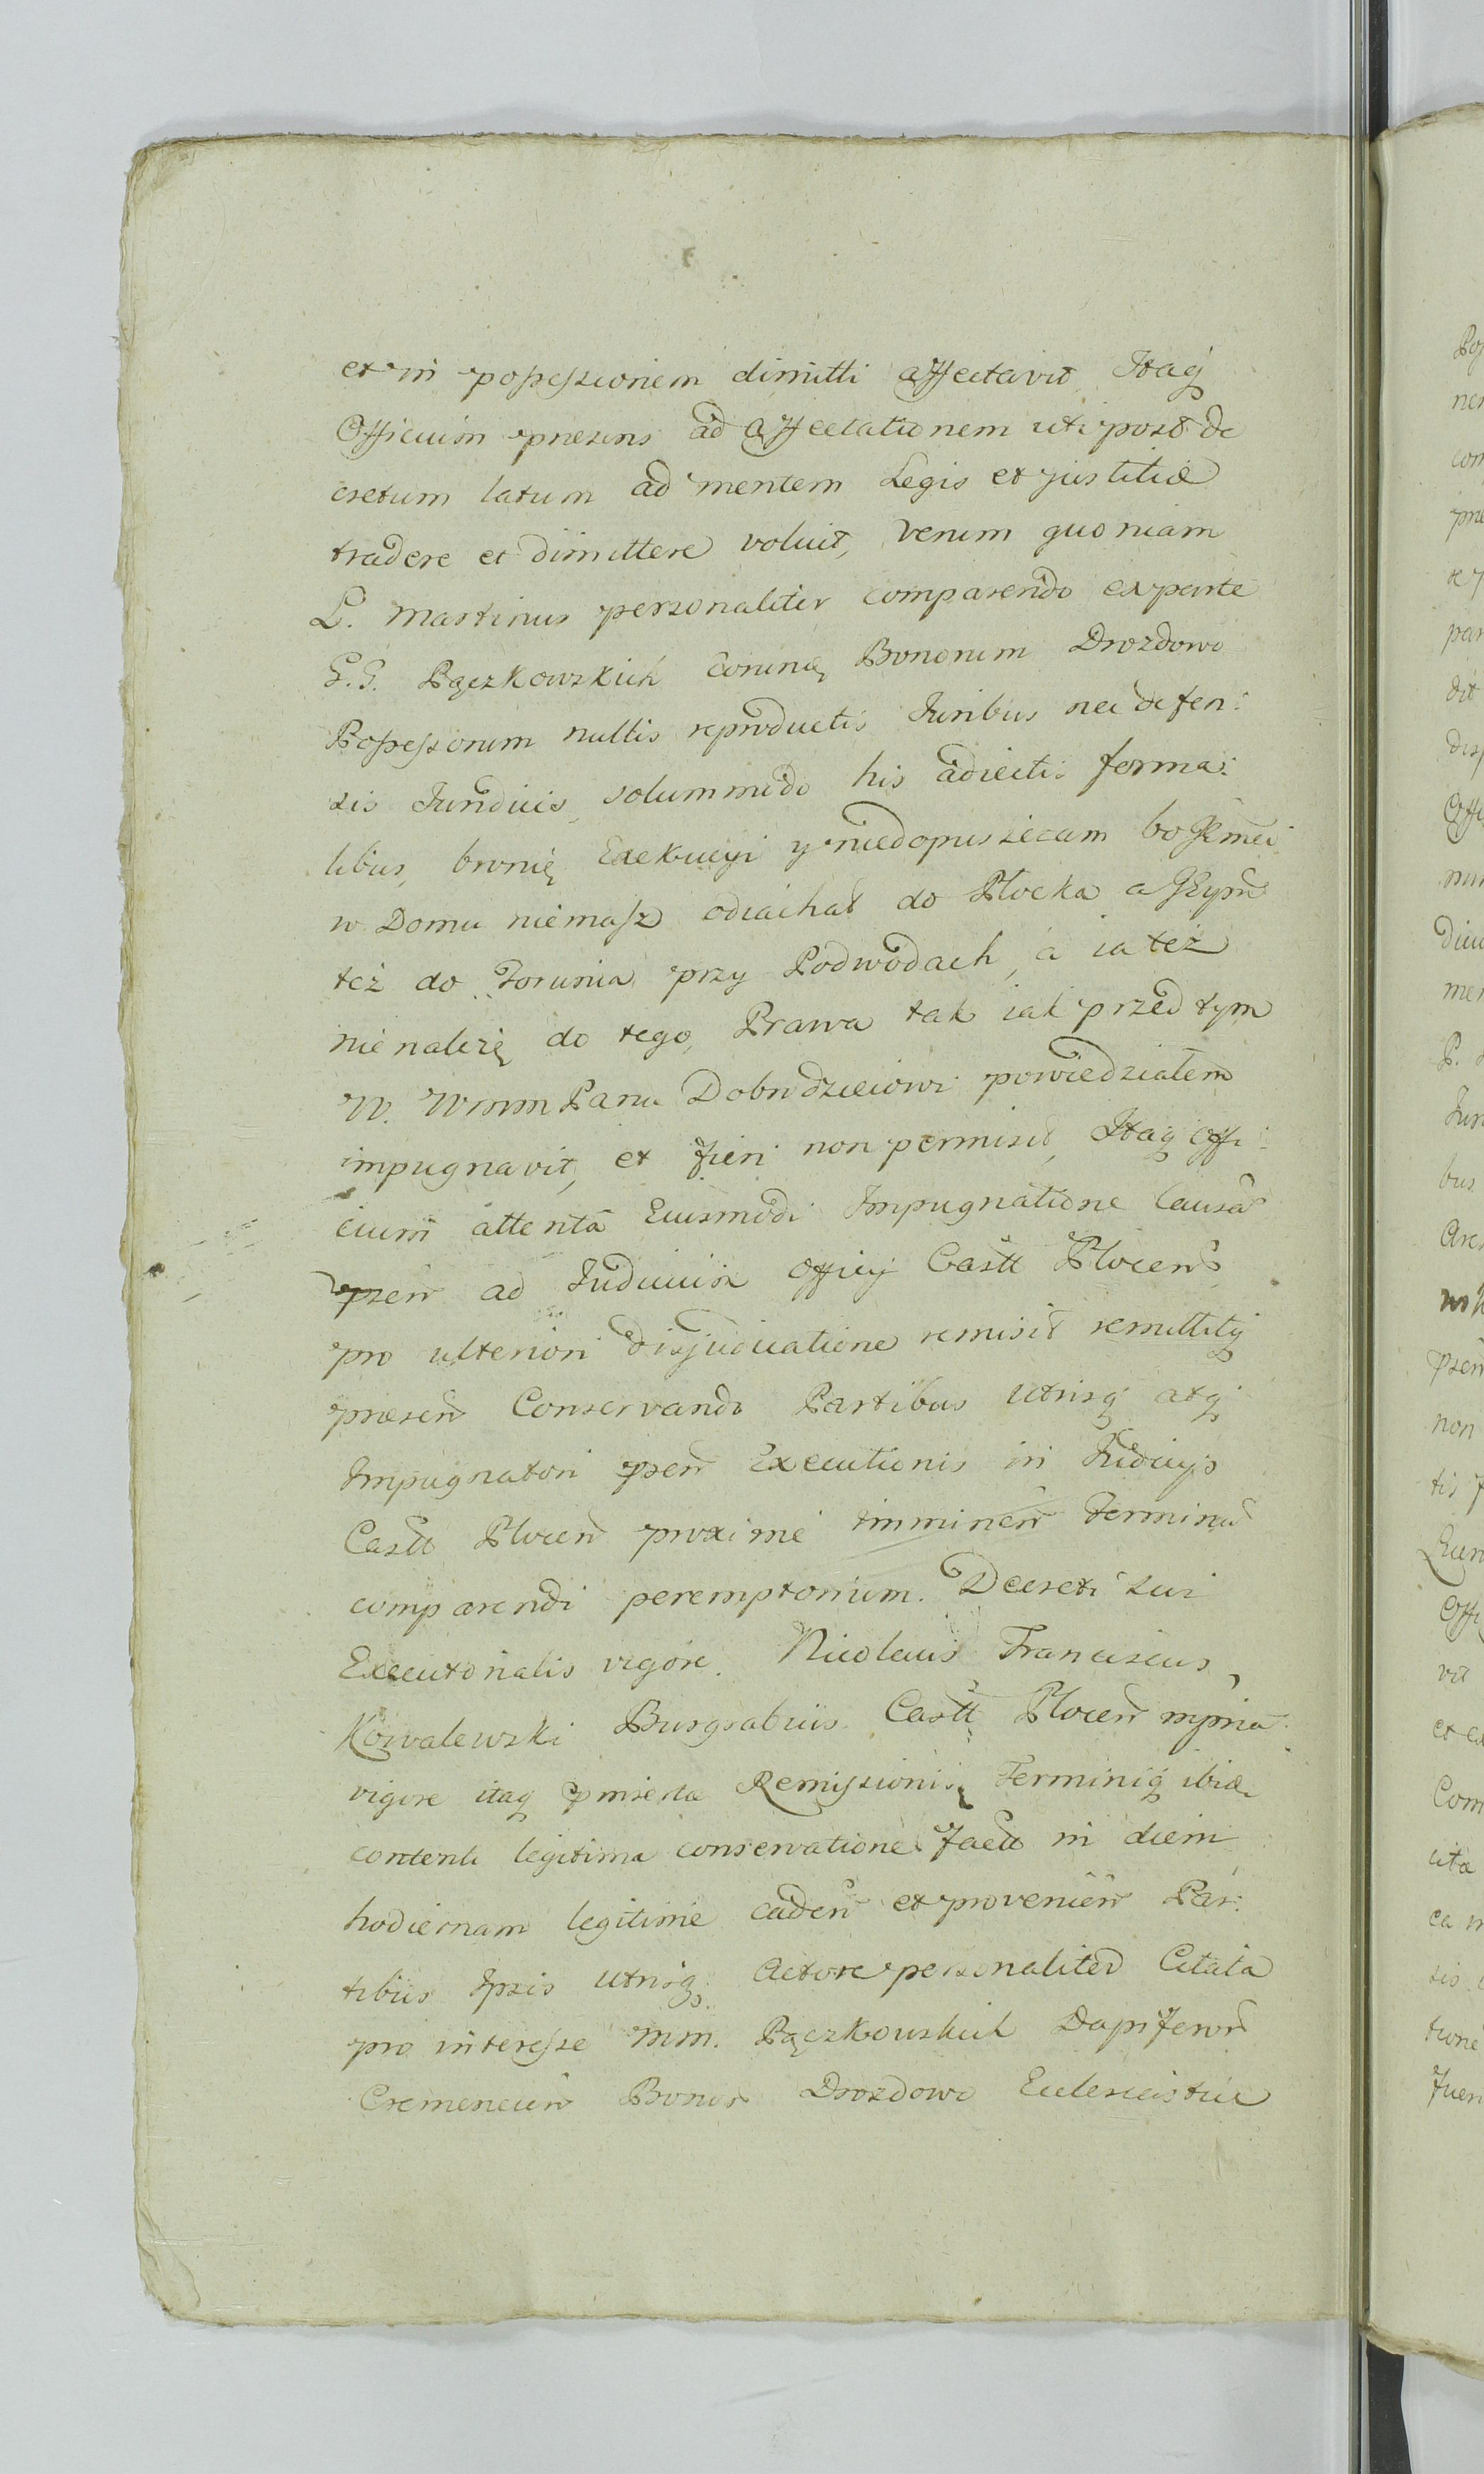 et in possessionem dimitti affectavit, Itaq
Officium praesens ad affectationem uti post de
cretum latum ad mentem Legis et justitiae
tradere et dimittere voluit, verum quoniam
L. Martinus personaliter comparendo ex parte
G.G. Pączkowskich Bonorum Drozdowo
Possessorum nullis reproductis Juribus nec defen:
sis Juridicis, solummodo his adiectis forma:
libus, bronię Exekucyi y niedopuszczam bo
w Domu niemasz odiachał do Płocka a
też do Torunia przy Podwodach, a ia też
nie należę do tego, Prawa tak iak przed tym
W. Wmm Panu Dobrodzieiowi powiedziałem
impugnavit, et fieri non permisit, Itaq Offi:
cium attentâ Eiusmodi Impugnatione Causam
psen ad Judicium Officy Castt Plocen
pro ulteriori disjudicatione remisit remittitq
praesen Conservando Partibus utrisq atq
Impugnatori psen Executionis in Judicijs
Castt Plocen proxime imminen Terminum
comparendi peremptorium. Decreti sui
Executorialis vigore. Nicolaus Franciscus
Kowalewski Burgrabius Castt Plocen mpria
vigore itaq Remissionis Terminiq ibid
contenti legitima conservatione fact in diem
hodiernam legitime caden et provenien Par:
tibus Ipsis utrisq Actore personaliter Citata
pro interesse MM. Pączkowskich Dapiferor
Cremenecen Bonor Drozdowo